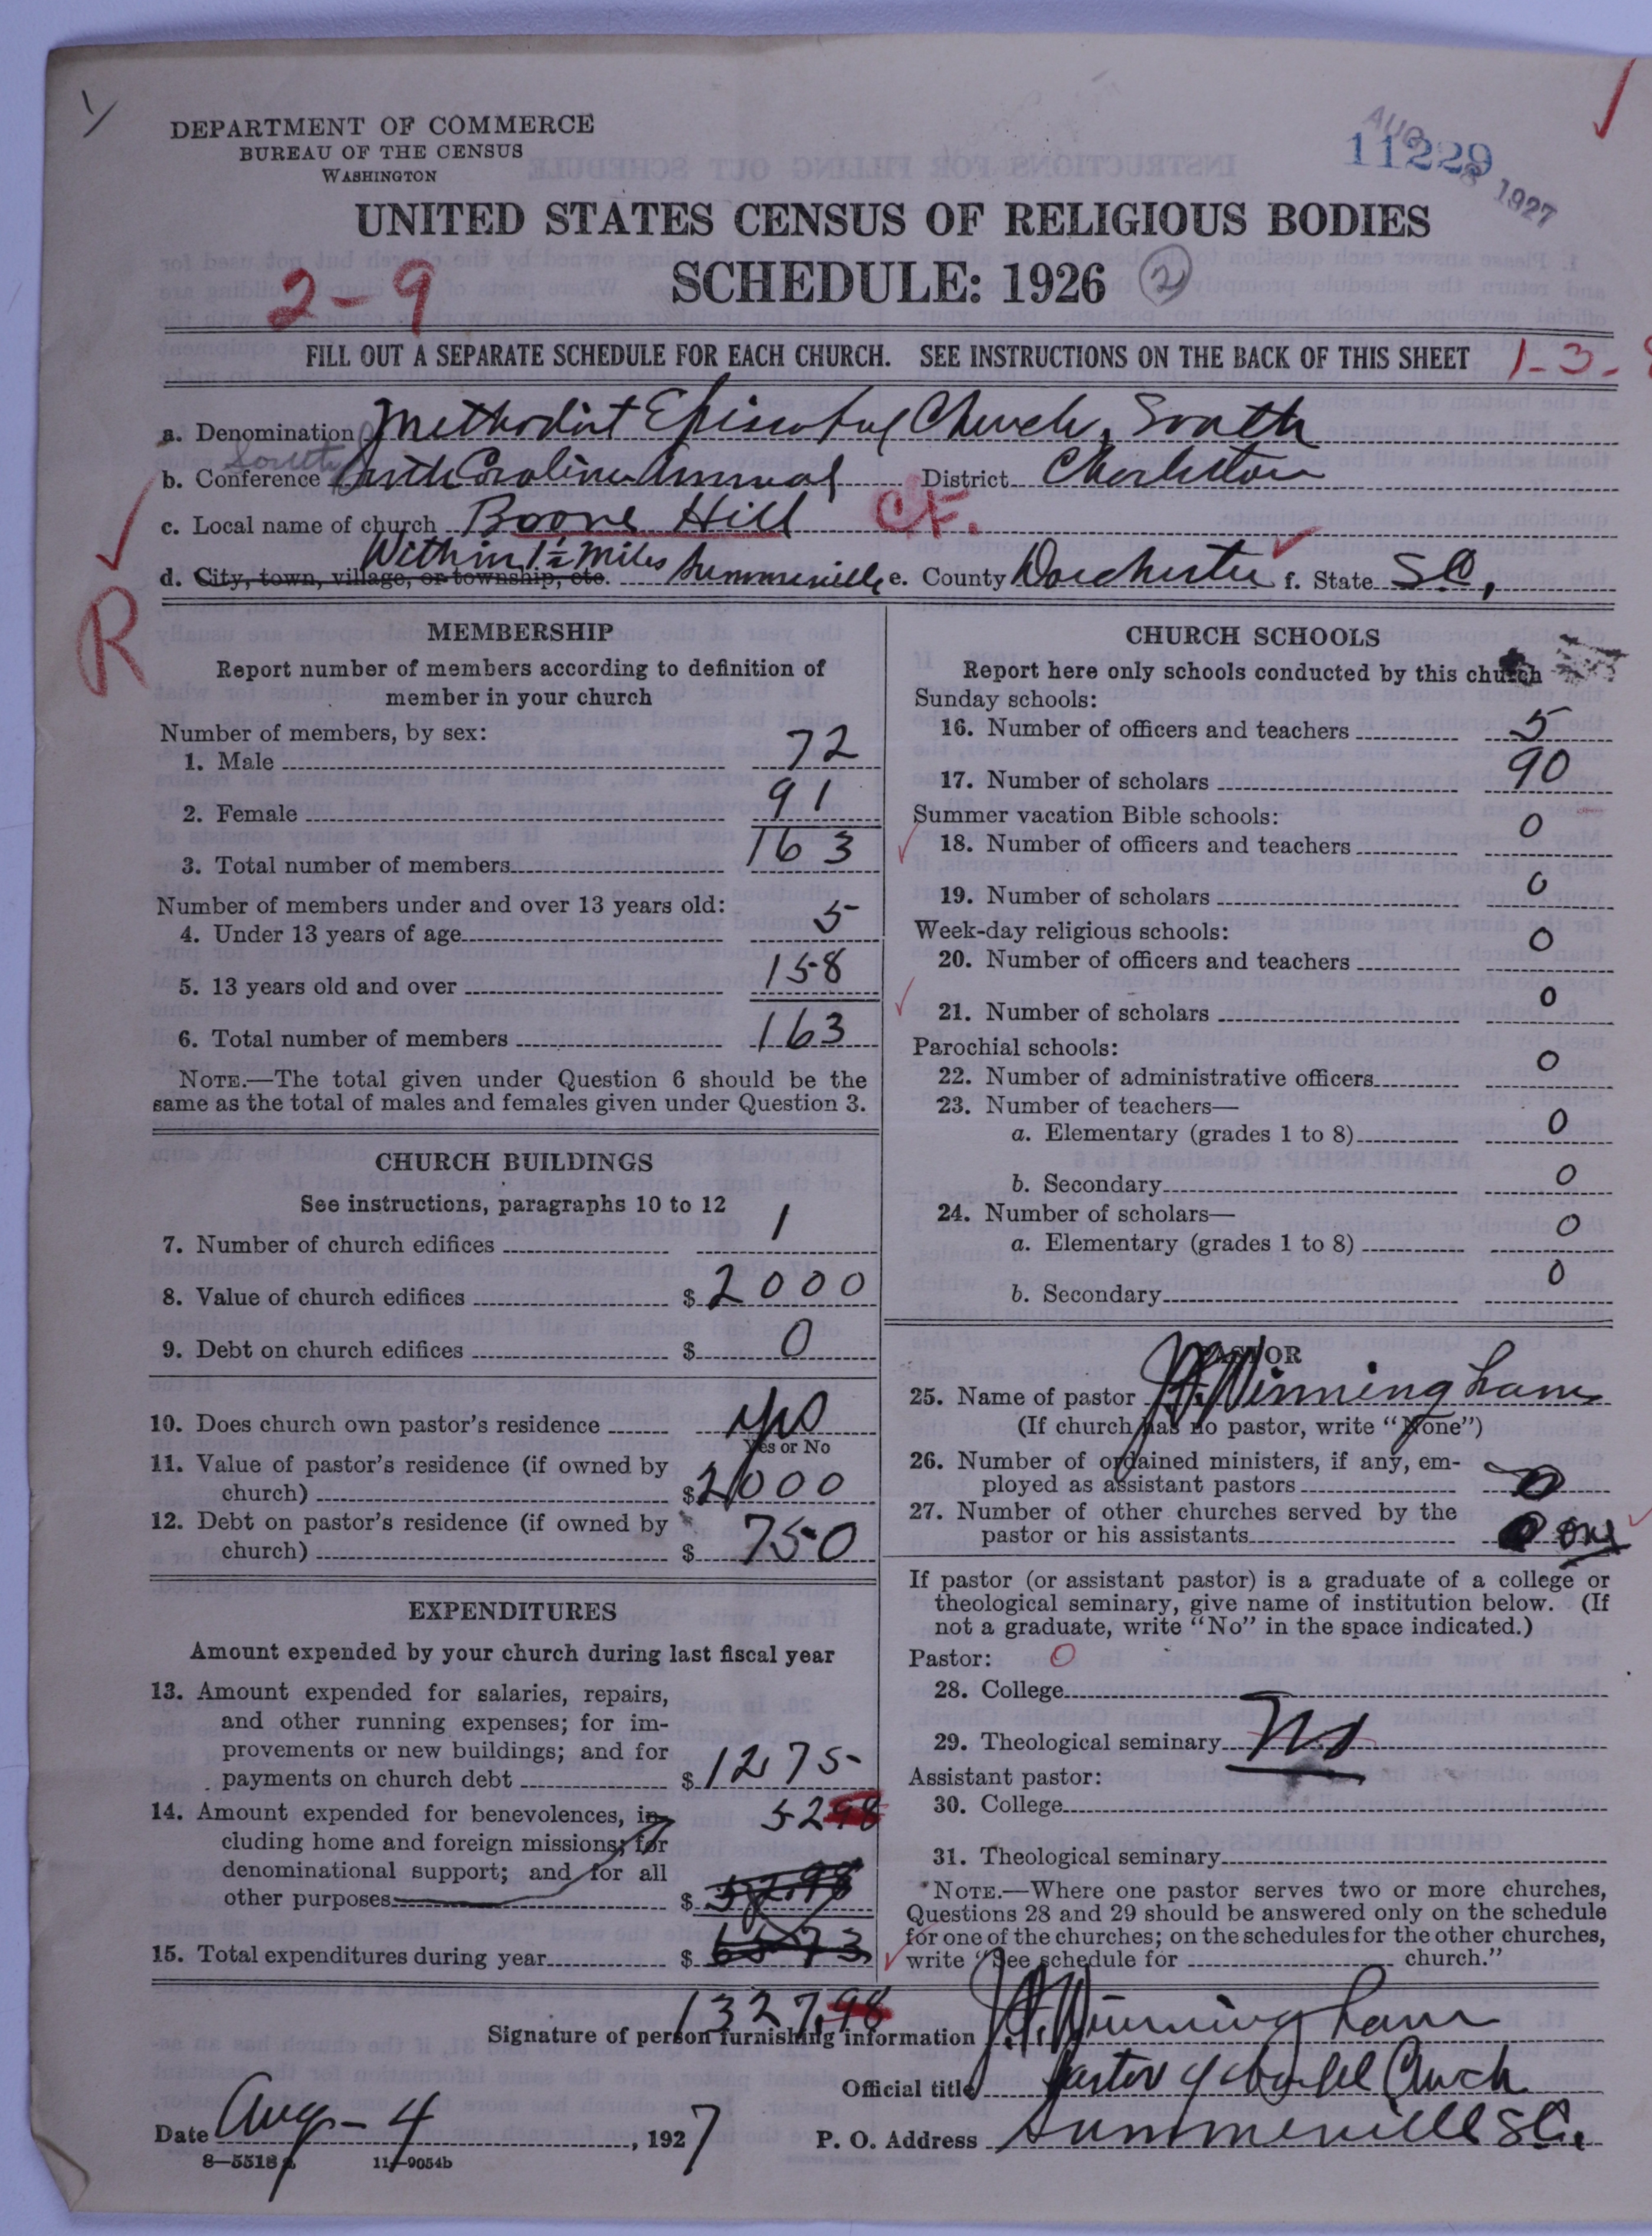 DEPARTMENT OF COMMERCE
BUREAU OF THE CENSUS
WASHINGTON
AUG 8 1927
11229
UNITED STATES CENSUS OF RELIGIOUS BODIES
SCHEDULE: 1926 2
2-9
FILL OUT A SEPARATE SCHEDULE FOR EACH CHURCH. SEE INSTRUCTIONS ON THE BACK OF THIS SHEET
1-3-
a. Denomination Methodist Episcopal Church, South
South
b. Conference South Carolina Annual District Charleston
c. Local name of church Boone Hill C.F.
Within 1½ Miles
d. City, town, village, or township, etc. Summerville e. County Dorchester f. State S.C,
R
MEMBERSHIP
Report number of members according to definition of
member in your church
Number of members, by sex:
1. Male 72
2. Female 91
3. Total number of members 163
Number of members under and over 13 years old:
4. Under 13 years of age 5
5. 13 years old and over 158
6. Total number of members 163
NOTE.—The total given under Question 6 should be the
same as the total of males and females given under Question 3.
CHURCH BUILDINGS
See instructions, paragraphs 10 to 12
7. Number of church edifices 1
8. Value of church edifices $ 2000
9. Debt on church edifices $ 0
10. Does church own pastor's residence yes
Yes or No
11. Value of pastor's residence (if owned by
church) $ 2000
12. Debt on pastor's residence (if owned by
church) $ 750
EXPENDITURES
Amount expended by your church during last fiscal year
13. Amount expended for salaries, repairs,
and other running expenses; for im-
provements or new buildings; and for
payments on church debt $ 1275
14. Amount expended for benevolences, in- 52 98
cluding home and foreign missions; for
denominational support; and for all
other purposes $ 52.98
15. Total expenditures during year $ 6573
1327,98
CHURCH SCHOOLS
Report here only schools conducted by this church
Sunday schools:
16. Number of officers and teachers 5
17. Number of scholars 90
Summer vacation Bible schools:
18. Number of officers and teachers 0
19. Number of scholars 0
Week-day religious schools:
20. Number of officers and teachers 0
21. Number of scholars 0
Parochial schools:
22. Number of administrative officers 0
23. Number of teachers—
a. Elementary (grades 1 to 8) 0
b. Secondary 0
24. Number of scholars—
a. Elementary (grades 1 to 8) 0
b. Secondary 0
PASTOR
25. Name of pastor Winningham
(If church has no pastor, write "None")
26. Number of ordained ministers, if any, em-
ployed as assistant pastors 0
27. Number of other churches served by the
pastor or his assistants one
If pastor (or assistant pastor) is a graduate of a college or
theological seminary, give name of institution below. (If
not a graduate, write "No" in the space indicated.)
Pastor: 0
28. College
29. Theological seminary No
Assistant pastor:
30. College
31. Theological seminary
NOTE.—Where one pastor serves two or more churches,
Questions 28 and 29 should be answered only on the schedule
for one of the churches; on the schedules for the other churches,
write "See schedule for church."
Signature of person furnishing information Winningham
Official title Pastor of Church
Date Aug - 4, 1927 P. O. Address Summerville S.C.
8—5518 a 11—9054b